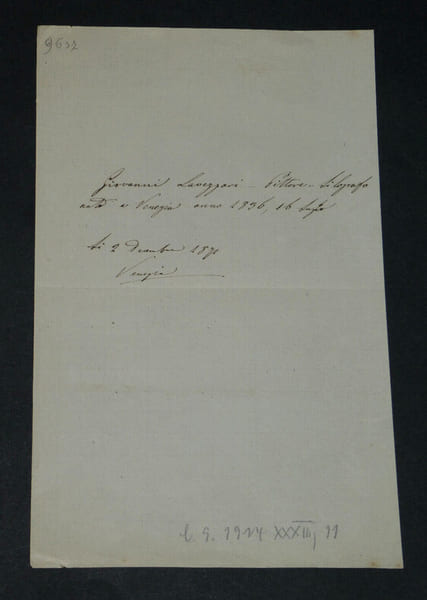 9632
Giovanni Lavezzari – Pittore – Litografo
nato a Venezia anno 1836, 16 Luglio
li 2 Dicembre 1871
Venezia
l. g. 1914 XXXIII, 11